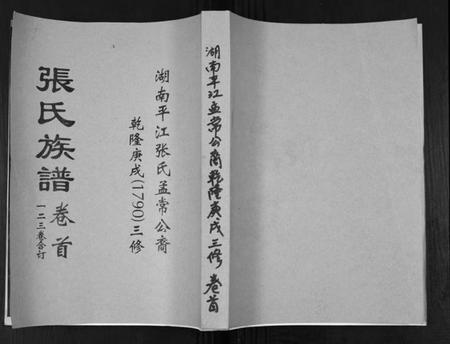 湖南平江孟常公裔乾隆庚戌三修 卷首
湖南平江张氏孟常公裔
乾隆庚戌(1790)三修
張氏族譜 卷首
一二三卷合订